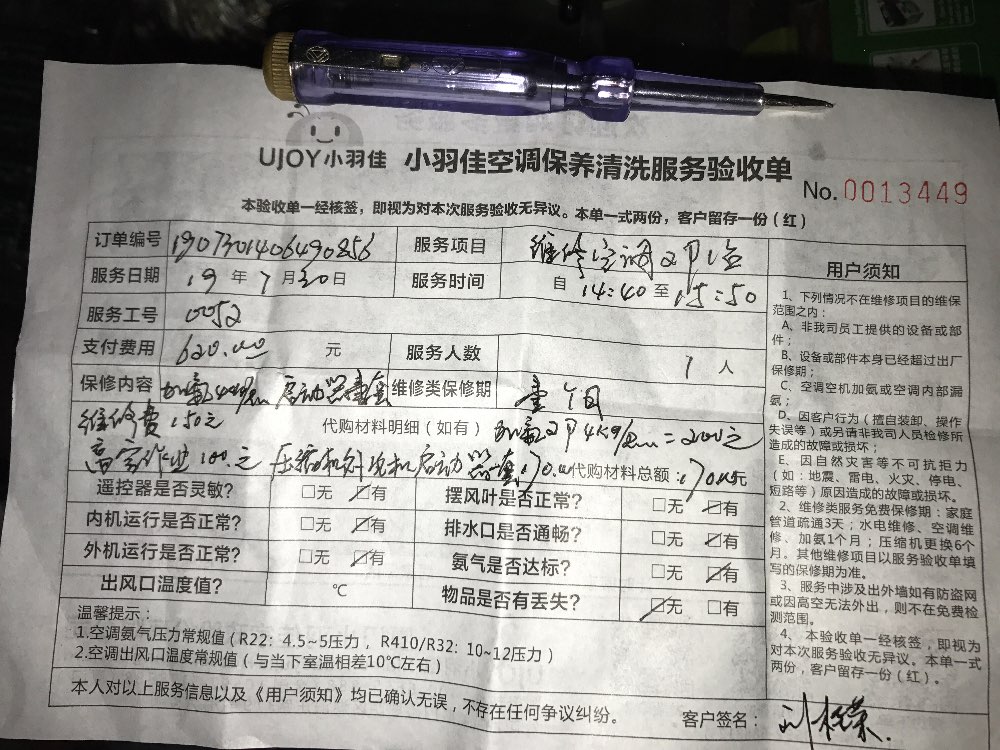 UJOY小羽佳 小羽佳空调保养清洗服务验收单 No.0013449
本验收单一经核签，即视为对本次服务验收无异议。本单一式两份，客户留存一份（红）
订单编号 1907301406490256 服务项目 维修空调2P
服务日期 19年7月30日 服务时间 自14:40至15:50
服务工号 0052
支付费用 620.00元 服务人数 1人
保修内容 加氟 启动器 维修类保修期 壹个月
维修费150元 代购材料明细（如有） 加氟2P4kg =200元
高空作业100.元 压缩机 启动器 170.00 代购材料总额：170.00元
遥控器是否灵敏？ □无 ☑有 摆风叶是否正常？ □无 ☑有
内机运行是否正常？ □无 ☑有 排水口是否通畅？ □无 ☑有
外机运行是否正常？ □无 ☑有 氨气是否达标？ □无 ☑有
出风口温度值？ ℃ 物品是否有丢失？ ☑无 □有
温馨提示：
1.空调氨气压力常规值（R22：4.5~5压力，R410/R32：10~12压力）
2.空调出风口温度常规值（与当下室温相差10℃左右）
本人对以上服务信息以及《用户须知》均已确认无误，不存在任何争议纠纷。 客户签名：
用户须知
1、下列情况不在维修项目的维保
范围之内：
A、非我司员工提供的设备或部
件；
B、设备或部件本身已经超过出厂
保修期；
C、空调空机加氨或空调内部漏
氨；
D、因客户行为（擅自装卸、操作
失误等）或另请非我司人员检修所
造成的故障或损坏；
E、因自然灾害等不可抗拒力
（如：地震、雷电、火灾、停电、
短路等）原因造成的故障或损坏。
2、维修类服务免费保修期：家庭
管道疏通3天；水电维修、空调维
修、加氨1个月；压缩机更换6个
月。其他维修项目以服务验收单填
写的保修期为准。
3、服务中涉及出外墙如有防盗网
或因高空无法外出，则不在免费检
测范围。
4、本验收单一经核签，即视为
对本次服务验收无异议。本单一式
两份，客户留存一份（红）。